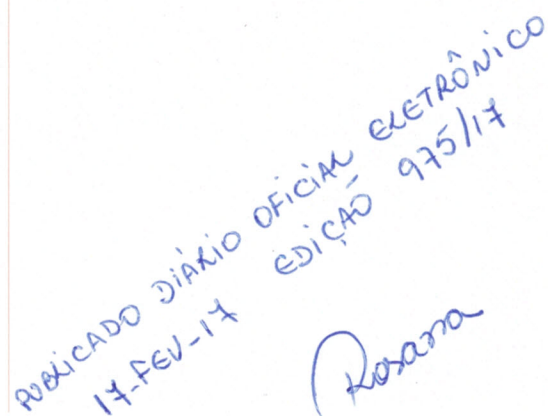 PUBLICADO DIÁRIO OFICIAL ELETRÔNICO
17-FEV-17 EDIÇAÕ 975/17
Rosana